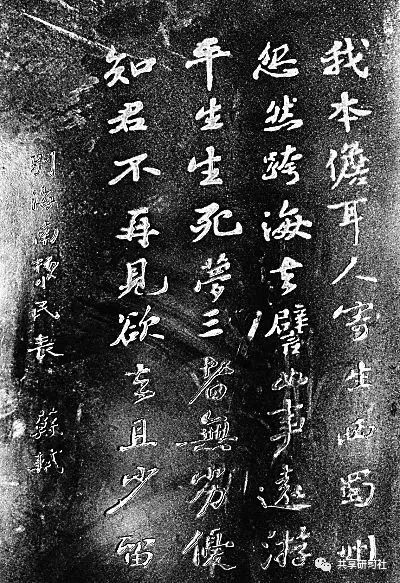 我本儋耳人寄生西蜀州
忽然跨海去譬如事遠游
平生生死夢三者無劣優
知君不再見欲去且少留
別海南黎民表 蘇軾
共享研习社